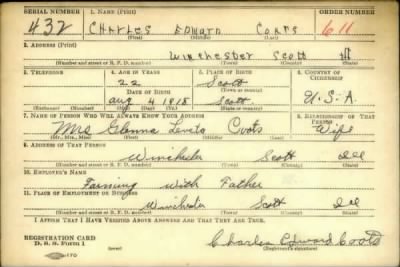 SERIAL NUMBER 1. NAME (Print) ORDER NUMBER
432 CHARLES EDWARD COATS 611
(First) (Middle) (Last)
2. ADDRESS (Print)
Winchester Scott Ill
(Number and street or R. F. D. number) (Town) (County) (State)
3. TELEPHONE 4. AGE IN YEARS 5. PLACE OF BIRTH 6. COUNTRY OF CITIZENSHIP
22 Scott
DATE OF BIRTH (Town or county)
Aug 4 1918 Scott U.S.A
(Exchange) (Number) (Mo.) (Day) (Yr.) (State or country)
7. NAME OF PERSON WHO WILL ALWAYS KNOW YOUR ADDRESS 8. RELATIONSHIP OF THAT PERSON
Mrs Glenna Coots Wife
(Mr., Mrs., Miss) (First) (Middle) (Last)
9. ADDRESS OF THAT PERSON
Winchester Scott Ill
(Number and street or R. F. D. number) (Town) (County) (State)
10. EMPLOYER'S NAME
Farming With Father
11. PLACE OF EMPLOYMENT OR BUSINESS
Winchester Scott Ill
(Number and street or R. F. D. number) (Town) (County) (State)
I AFFIRM THAT I HAVE VERIFIED ABOVE ANSWERS AND THAT THEY ARE TRUE.
REGISTRATION CARD
D. S. S. Form 1 Charles Edward Coots
(Registrant's signature)